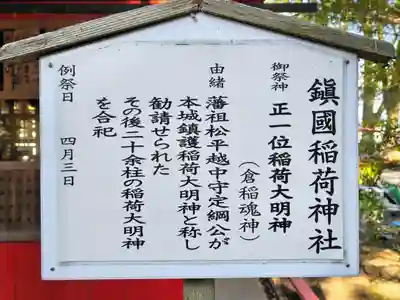 鎭國稲荷神社
御祭神 正一位稲荷大明神
（倉稲魂神）
由緒
藩祖松平越中守定綱公が
本城鎮護稲荷大明神と称し
勧請せられた
その後二十余柱の稲荷大明神
を合祀
例祭日 四月三日